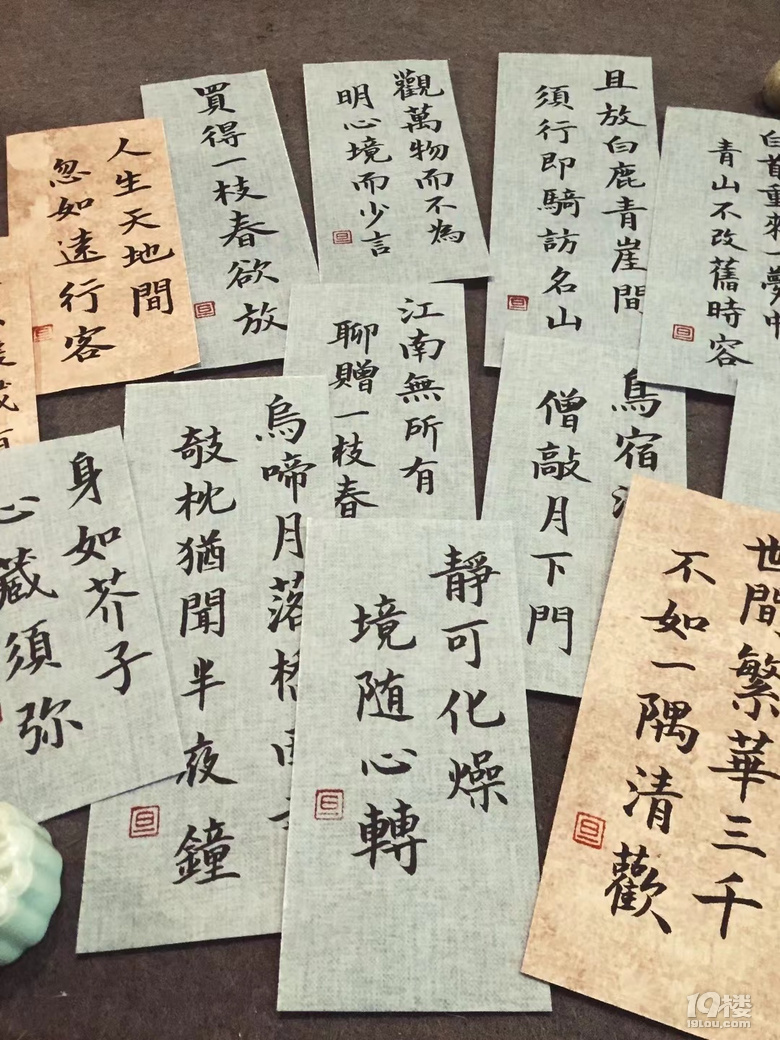 買得一枝春欲放
觀萬物而不為
明心境而少言
且放白鹿青崖間
須行即騎訪名山
白首重來一夢中
青山不改舊時容
人生天地間
忽如遠行客
江南無所有
聊贈一枝春
鳥宿
僧敲月下門
身如芥子
心藏須弥
烏啼月落橋
敧枕猶聞半夜鐘
靜可化燥
境随心轉
世間繁華三千
不如一隅清歡
旦
旦
旦
旦
旦
旦
旦
19楼
19lou.com